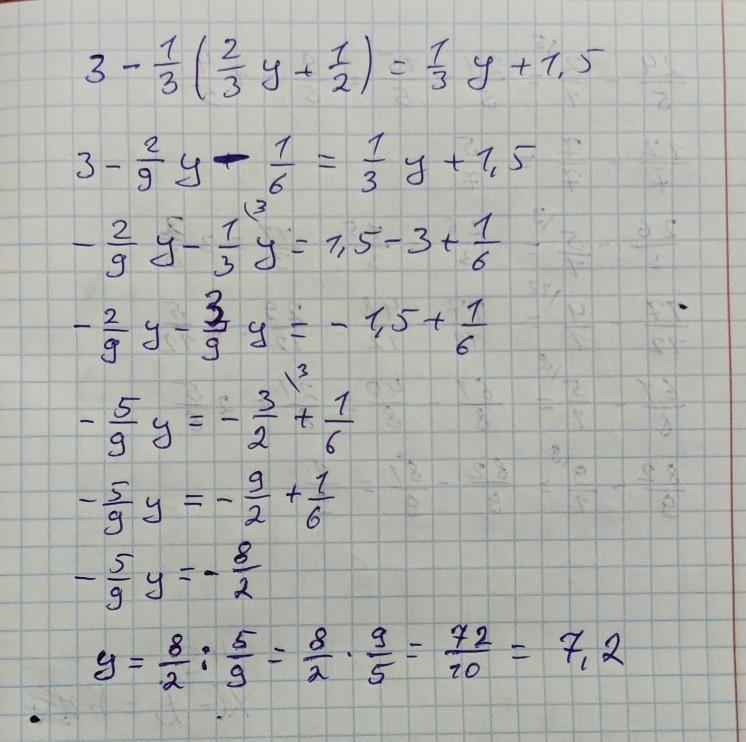 3 - 1/3 (2/3 y + 1/2) = 1/3 y + 1,5
3 - 2/9 y - 1/6 = 1/3 y + 1,5
- 2/9 y - 1/3 (3 y = 1,5 - 3 + 1/6
- 2/9 y - 3/9 y = - 1,5 + 1/6
- 5/9 y = - 3/2 (3 + 1/6
- 5/9 y = - 9/2 + 1/6
- 5/9 y = - 8/2
y = 8/2 : 5/9 = 8/2 · 9/5 = 72/10 = 7,2